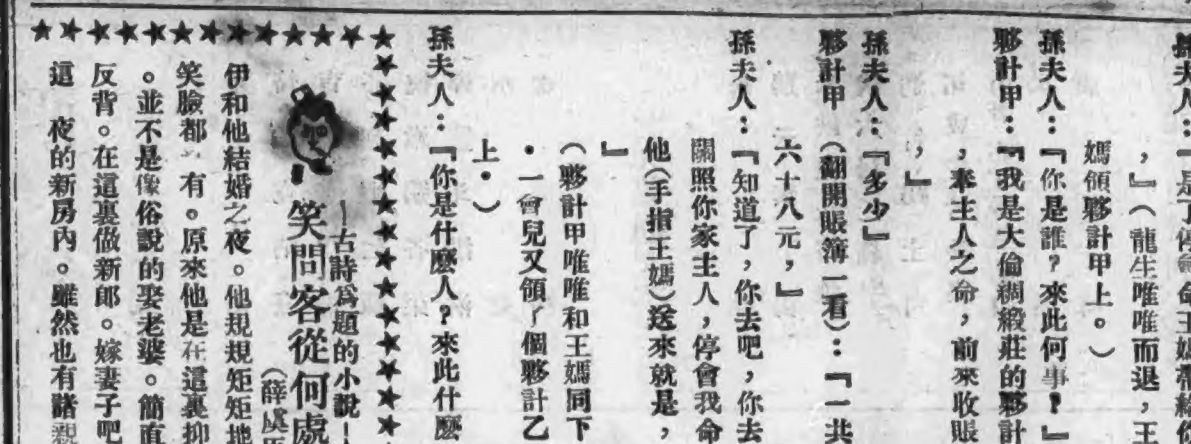 孫夫人：『是了停會命王媽帶給你
，』（龍生唯唯而退，王
媽領夥計甲上。）
孫夫人：『你是誰？來此何事？』
夥計甲：『我是大倫綢緞莊的夥計
，奉主人之命，前來收賬
，』
孫夫人：『多少』
夥計甲：（翻開賬簿一看）：『一共
六十八元，』
孫夫人：『知道了，你去吧，你去
關照你家主人，停會我命
他（手指王媽）送來就是，
』
（夥計甲唯唯和王媽同下
・一會兒又領了個夥計乙
上・）
孫夫人：『你是什麼人？來此什麼
—古詩爲題的小說—
笑問客從何處
（薛虞
伊和他結婚之夜。他規規矩矩地
笑臉都 有。原來他是在這裏抑
。並不是像俗說的娶老婆。簡直
反背。在這裏做新郎。嫁妻子吧
這 夜的新房內。雖然也有諸親